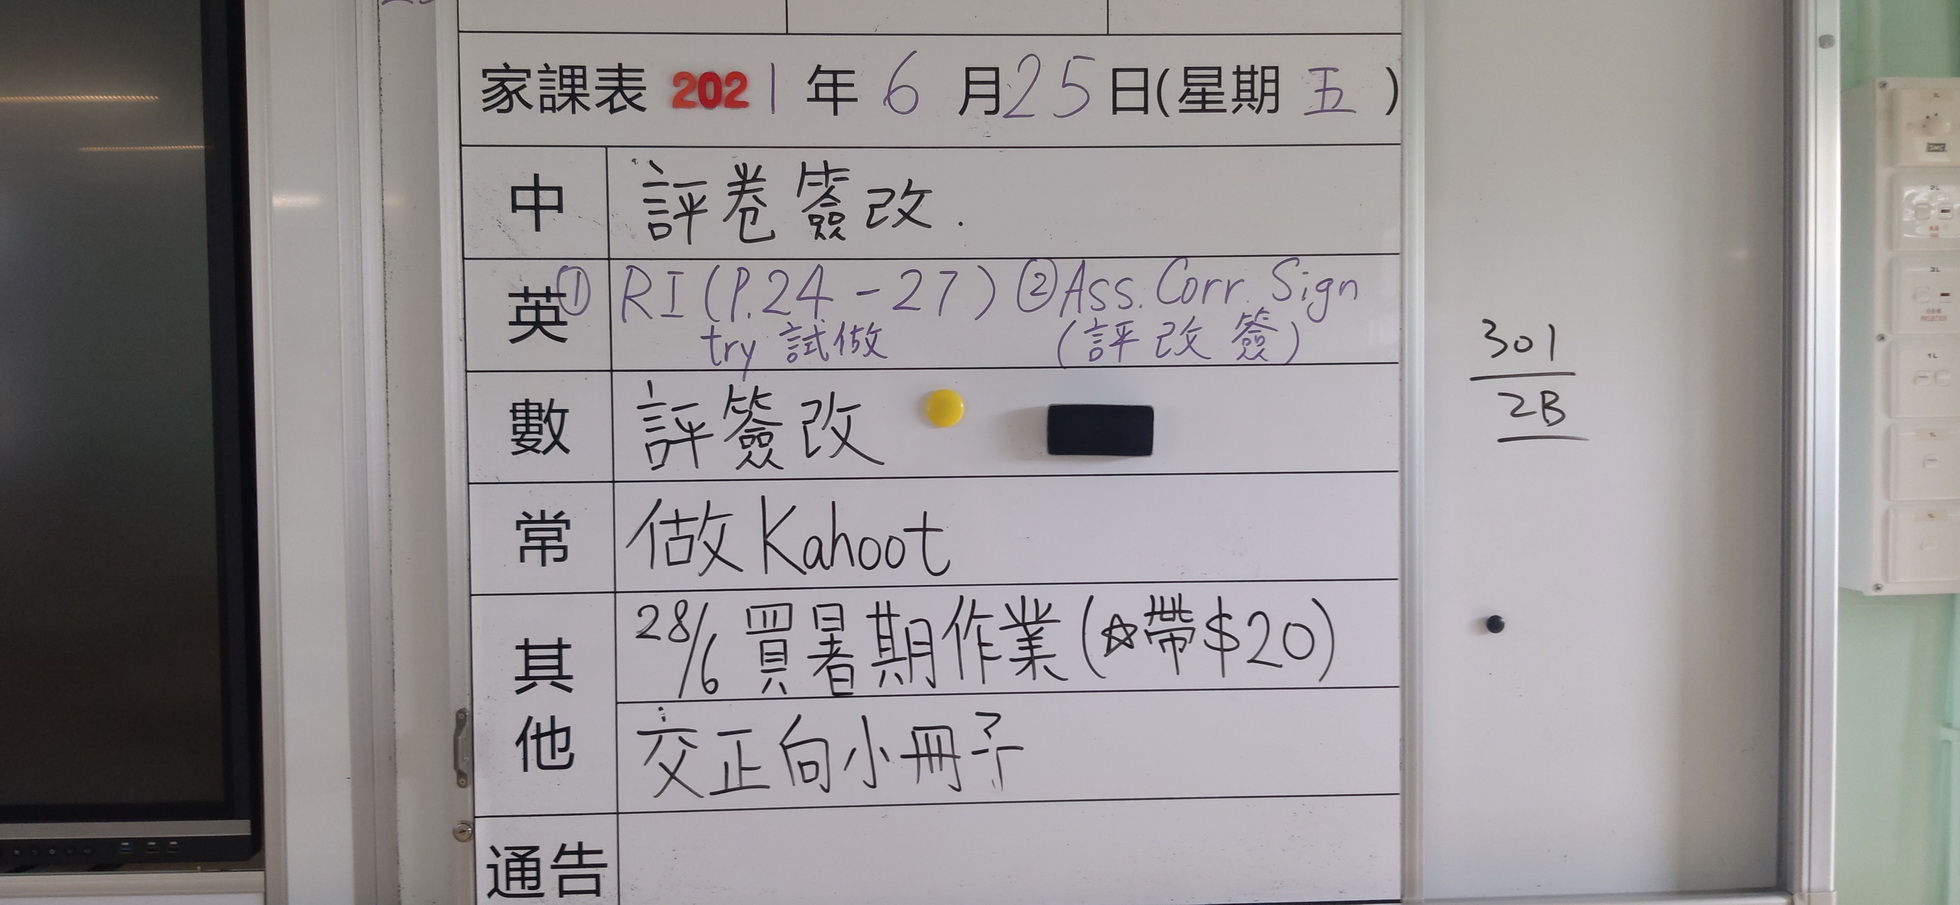 家課表 2021年6月25日(星期五)
中 評卷簽改.
英 ① RI (P.24-27) ② Ass. Corr. Sign
try 試做 (評改簽)
數 評簽改
常 做 Kahoot
其他 28/6 買暑期作業(☆帶$20)
交正向小冊子
通告
301
2B